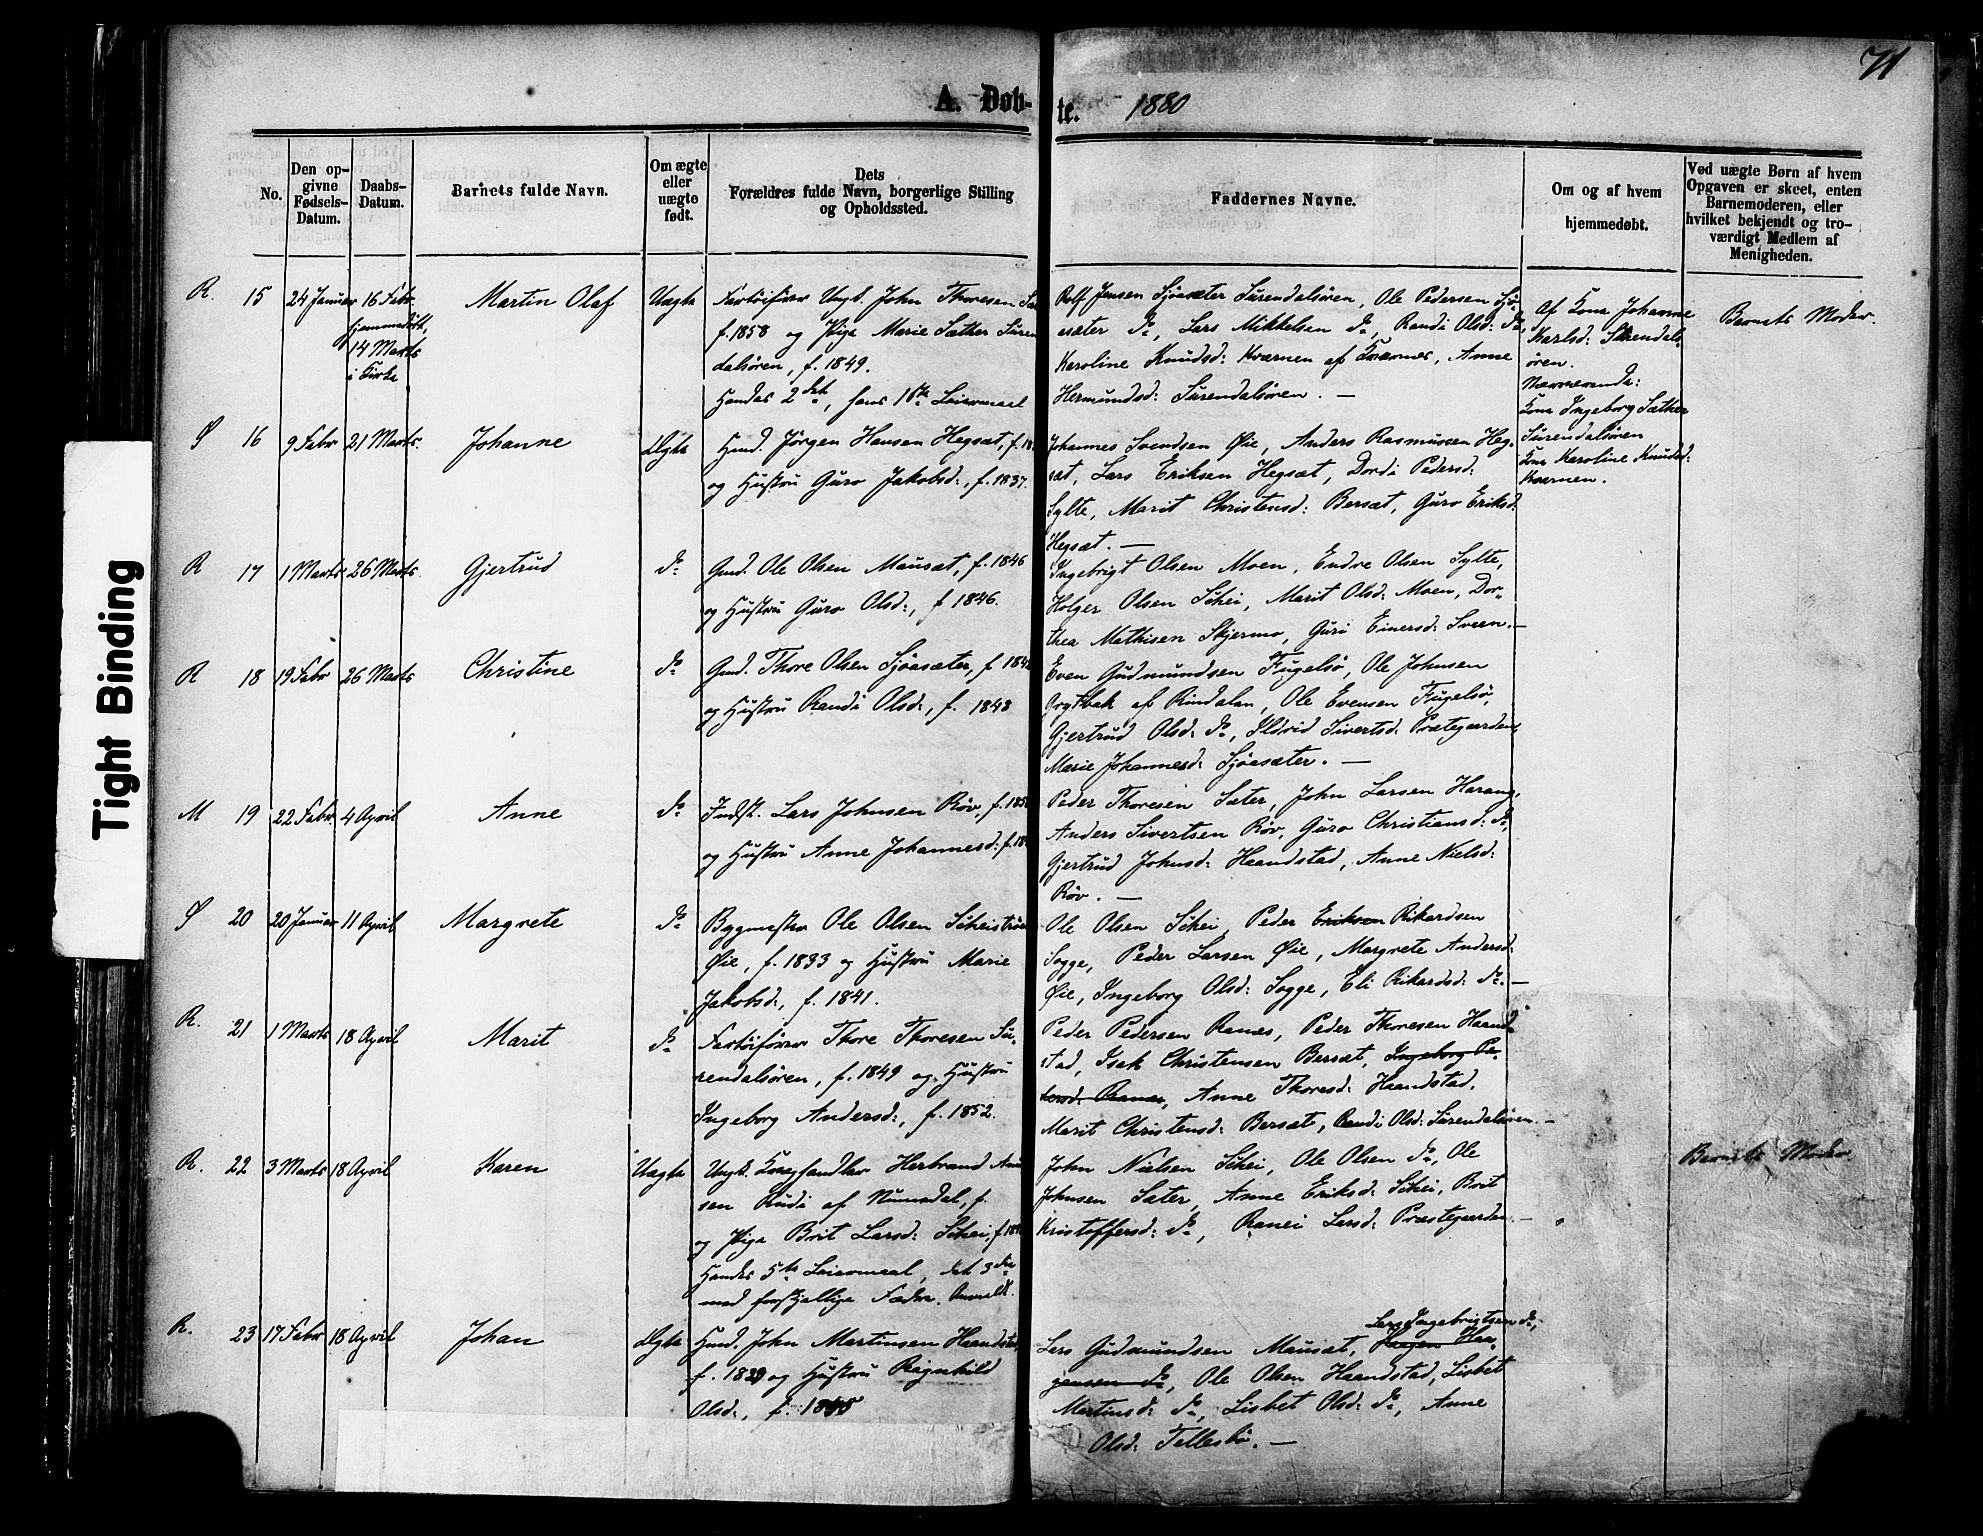 71
A. Døb-te. 1880
Tight Binding
No.
Den op-
givne
Fødsels-
Datum.
Daabs-
Datum.
Barnets fulde Navn.
Om ægte
eller
uægte
født.
Dets
Forældres fulde Navn, borgerlige Stilling
og Opholdssted.
Faddernes Navne.
Om og af hvem
hjemmedøbt.
Ved uægte Børn af hvem
Opgaven er skeet, enten
Barnemoderen, eller
hvilket bekjendt og tro-
værdigt Medlem af
Menigheden.
R. 15 24 Januar 16 Febr. hjemmedøbt, 14 Marts i Kirke Martin Olaf Uægte
Fartøifører Ungk. John Thoresen
f. 1858 og Pige Marie Sæther Suren
dalsøren, f. 1849.
Hendes 2det, hans 1ste Leiermaal
Rolf Jensen Sjøasæter Surendalsøren, Ole Pedersen Sjø-
asæter do, Lars Mikkelsen do, Randi Olsd: do,
Karoline Knudsd: Kværnen af Kværnes, Anne
Hermundsd: Surendalsøren. —
Af Kona Johanne
Karlsd: Surendals-
øren.
Nærværende:
Kona Ingeborg Sæther
Surendalsøren
Kona Karoline Knudsd:
Kværnen.
Barnets Moder.
Ø 16 9 Febr 21 Marts. Johanne Ægte
Husm. Jørgen Hansen Hegsæt, f. 18
og Hustru Guro Jakobsd:, f. 1837.
Johannes Svendsen Øie, Anders Rasmussen Heg-
sæt, Lars Eriksen Hegsæt, Dordi Pedersd:
Sylte, Marit Christensd: Bersæt, Guro Eriksd:
Hegsæt. —
R 17 1 Marts 26 Marts. Gjertrud do
Gmd. Ole Olsen Mausæt, f. 1846
og Hustru Guro Olsd:, f 1846.
Ingebrigt Olsen Moen, Endre Olsen Sylte,
Holger Olsen Schei, Marit Olsd: Moen, Dor-
thea Mathisen Skjermo, Guri Einersd: Sveen. —
R 18 19 Febr 26 Marts Christine do
Gmd. Thore Olsen Sjøasæter, f 184
og Hustru Randi Olsd:, f. 1848
Even Gudmundsen Fugelsø, Ole Johnsen
Grytbak af Rindalen, Ole Evensen Fugelsø,
Gjertrud Olsd: do, Ildrid Sivertsd: Præstegaarden,
Marie Johannesd: Sjøasæter. —
M 19 22 Febr. 4 April Anne do
Indst. Lars Johnsen Røv, f. 185
og Hustru Anne Johannesd: f. 18
Peder Thoresen Sæter, John Larsen Harang,
Anders Sivertsen Røv, Guro Christiansd: do,
Gjertrud Johnsd: Haandstad, Anne Nielsd:
Røv. —
Ø 20 20 Januar 11 April Margrete do
Bygmester Ole Olsen Scheistrøen
Øie, f. 1833 og Hustru Marie
Jakobsd:, f. 1841.
Ole Olsen Schei, Peder Eriksen Rikardsen
Sogge, Peder Larsen Øie, Margrete Andersd:
Øie, Ingeborg Olsd: Sogge, Eli Rikardsd: do. —
R. 21 1 Marts 18 April Marit do
Fartøifører Thore Thoresen Su-
rendalsøren, f. 1849 og Hustru
Ingeborg Andersd:, f. 1852.
Peder Pedersen Ranes, Peder Thoresen Haand-
stad, Isak Christensen Bersæt, Ingeborg Pe-
dersd: Ranes, Anne Thoresd: Haandstad,
Marit Christensd: Bersæt, Randi Olsd: Surendalsøren —
R. 22 3 Marts 18 April Karen Uægte
Ungk. Kræghandler Herbrand
sen Rudi af Numedal, f.
og Pige Brit Larsd: Schei, f. 18
Hendes 5te Leiermaal, det 3die
med forskjellige Fædre. Anmeldt.
John Nielsen Schei, Ole Olsen do, Ole
Johnsen Sæter, Anne Eriksd: Schei, Brit
Kristoffersd: do, Ranei Larsd: Præstegaarden —
Barnets Moder
R. 23 17 Febr 18 April Johan Ægte
Husm. John Martinsen Haandstad,
f. 1839 og Hustru Ragnhild
Olsd:, f. 1845
Lars Ingebrigtsen do,
Lars Gudmundsen Mausæt, Hagen Haa-
gensen do, Ole Olsen Haandstad, Lisbet
Martinsd: do, Lisbet Olsd: do, Anne
Olsd: Tellesbø. —